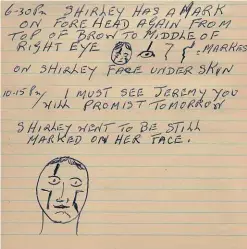 6-30PM SHIRLEY HAS A MARK
ON FOREHEAD AGAIN FROM
TOP OF BROW TO MIDDLE OF
RIGHT EYE MARKES
ON SHIRLEY FACE UNDER SKIN
10-15PM I MUST SEE JEREMY YOU
WILL PROMIST TOMORROW
SHIRLEY WENT TO BE STILL
MARKED ON HER FACE.